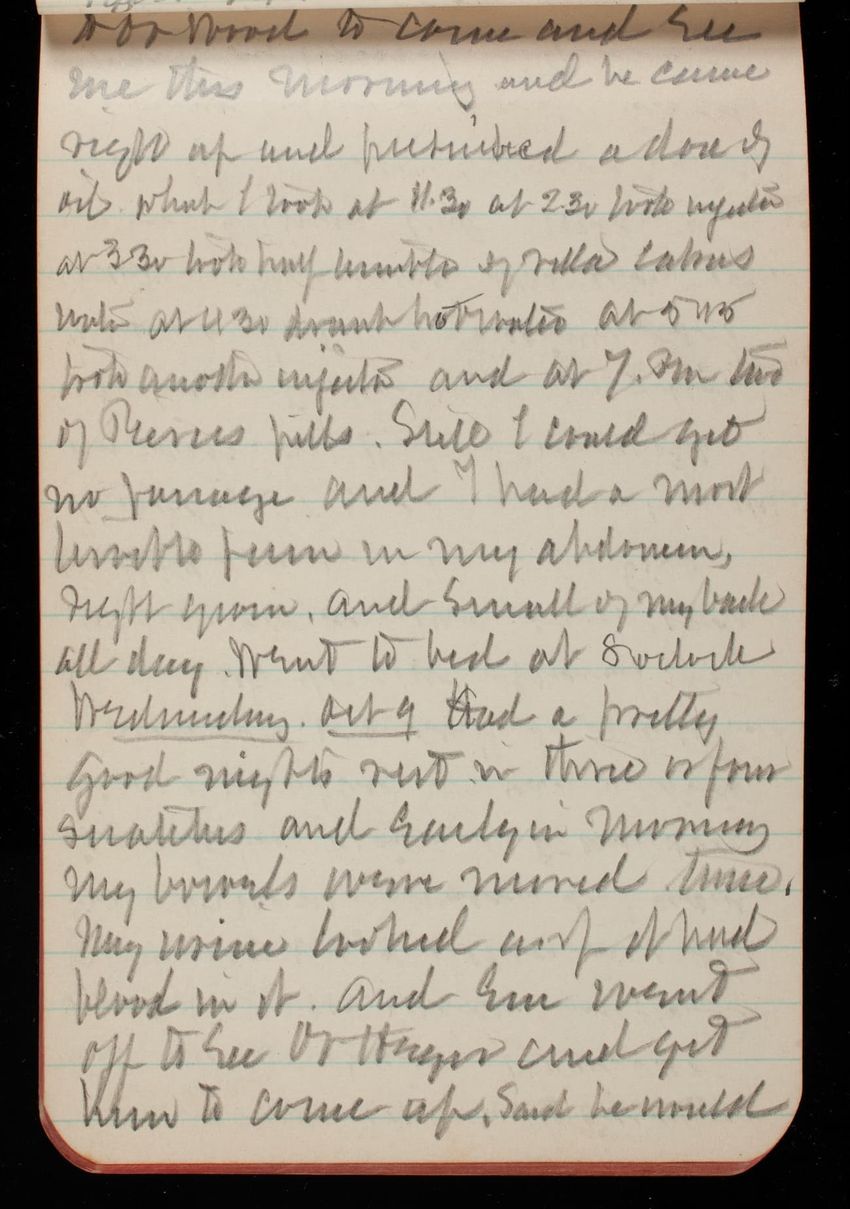 to Dr Wood to come and See
me this morning and he came
right up and prescribed a dose of
oil what I took at 11.30 at 2.30 took injectn
at 3 30 took half tumbler of
water at 4 30 drank hot water at 5 45
took another injectn and at 7. Pm two
of Pierces pills. Still I could get
no passage and I had a most
terrible pain in my abdomen,
right groin, and Small of my back
all day. Went to bed at 8 oclock
Wednesday. Oct 9 Had a pretty
good nights rest in three or four
snatches and Early in morning
my bowels were moved twice.
My urine looked as if it had
blood in it. And Em went
off to See Dr and get
him to come up. Said he would